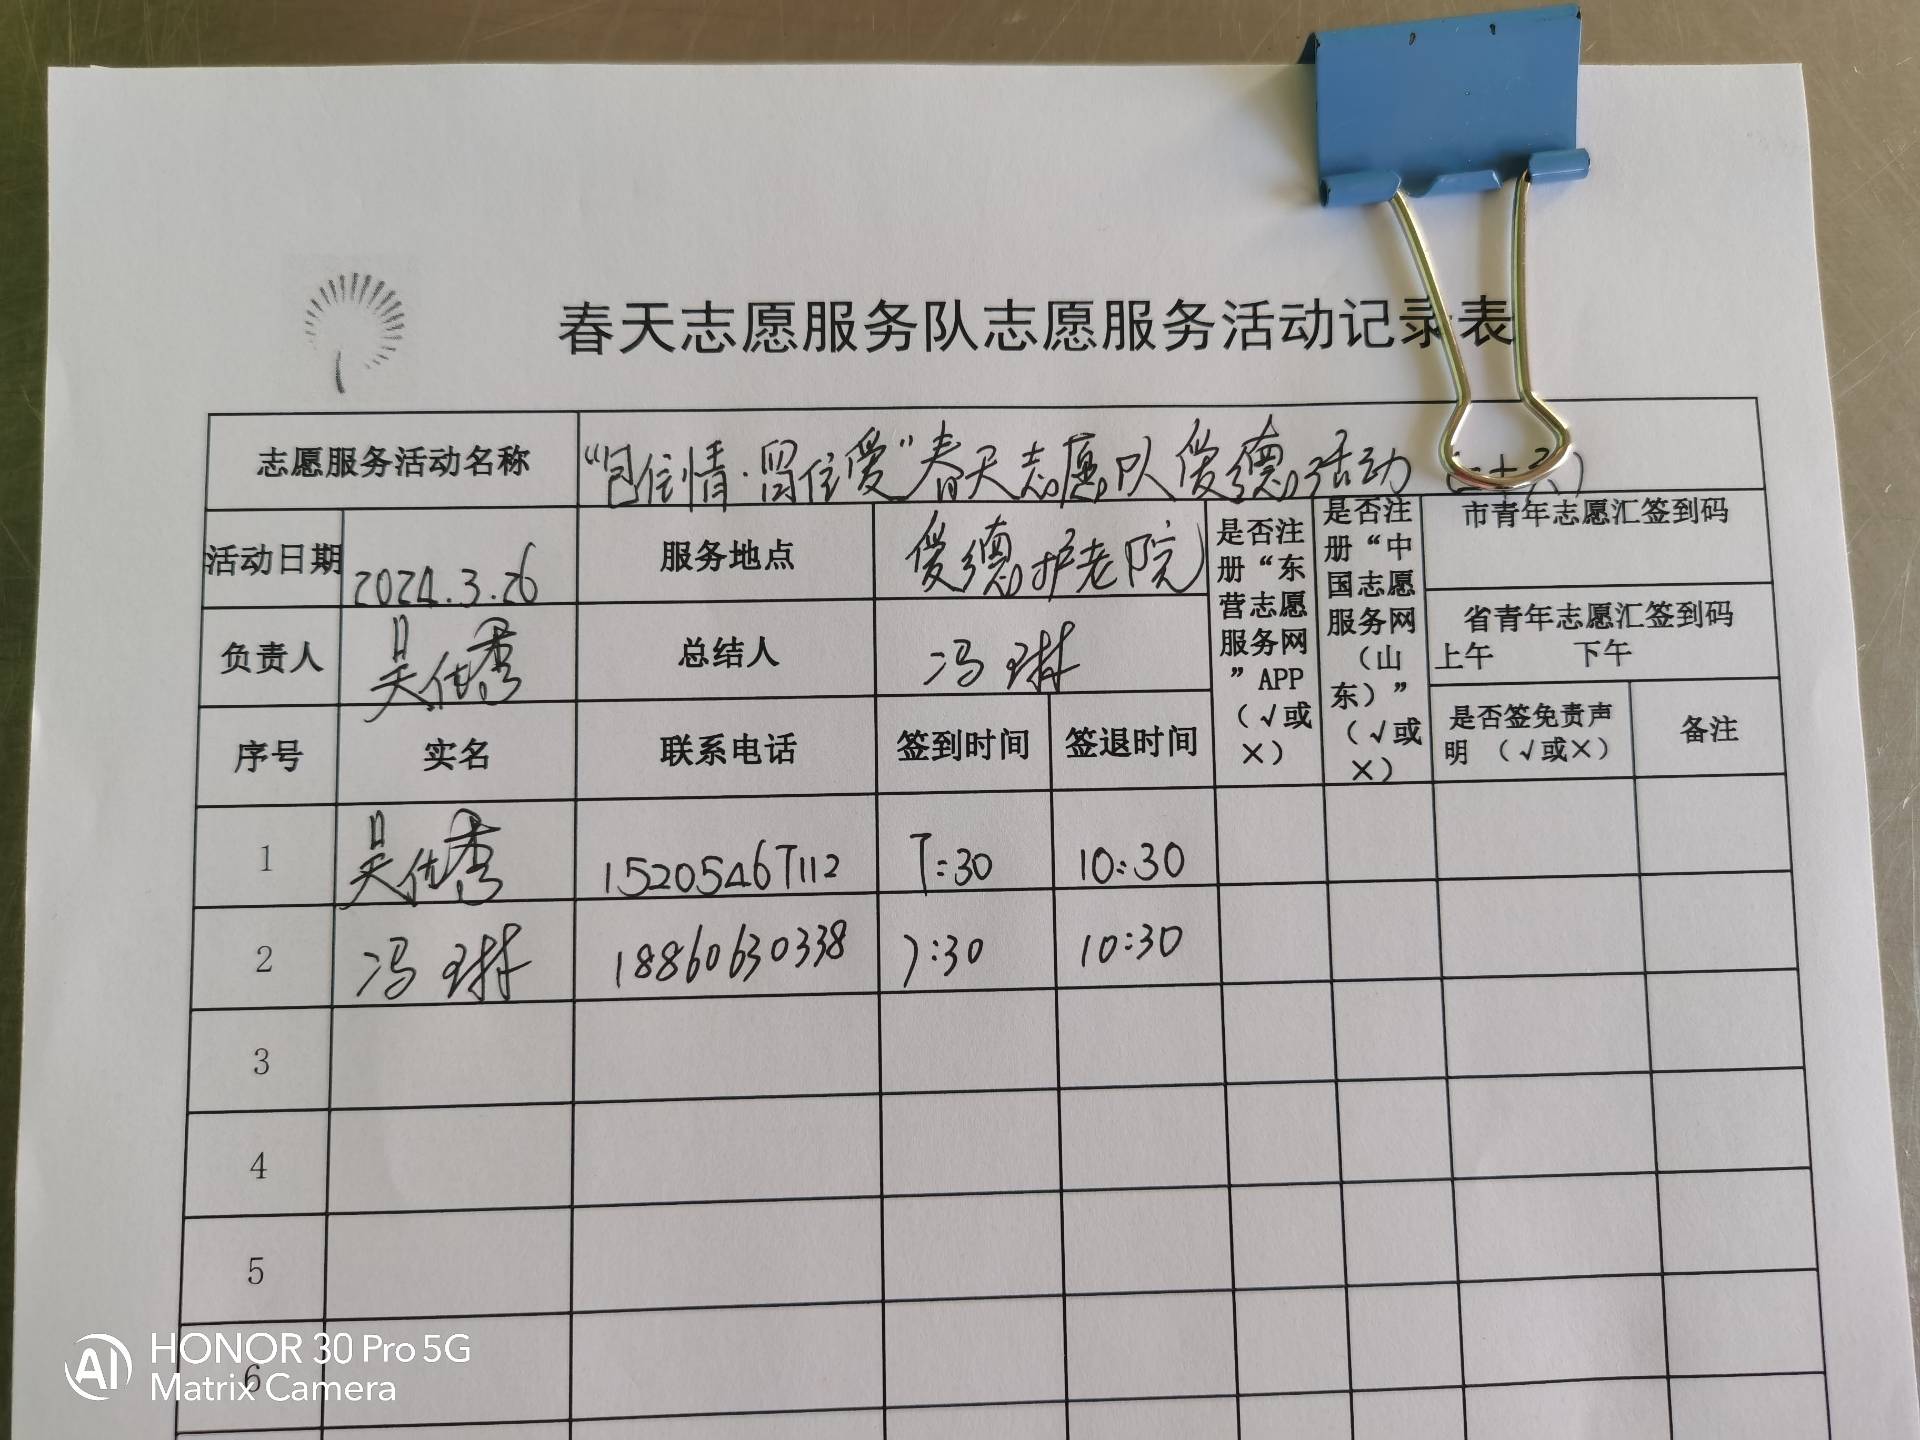 春天志愿服务队志愿服务活动记录表
志愿服务活动名称 “包住情·留住爱”春天志愿队爱德活动
活动日期 2024.3.26 服务地点 爱德护老院
是否注册“东营志愿服务网”APP（√或×）
是否注册“中国志愿服务网（山东）”（√或×）
市青年志愿汇签到码
省青年志愿汇签到码
上午 下午
负责人 吴优秀 总结人 冯琳
序号 实名 联系电话 签到时间 签退时间 是否签免责声明（√或×） 备注
1 吴优秀 15205467112 7:30 10:30
2 冯琳 18860630338 7:30 10:30
3
4
5
6
HONOR 30 Pro 5G
AI Matrix Camera